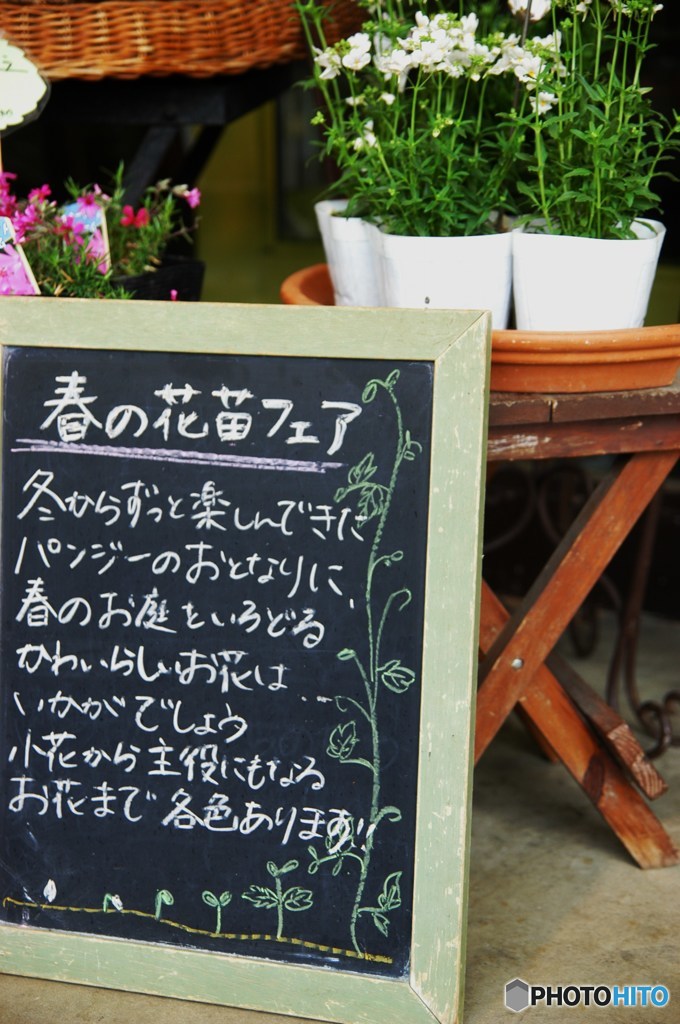 春の花苗フェア
冬からずっと楽しんできた
パンジーのおとなりに、
春のお庭をいろどる
かわいらしいお花は…
いかがでしょう
小花から主役にもなる
お花まで各色あります!!
PHOTOHITO